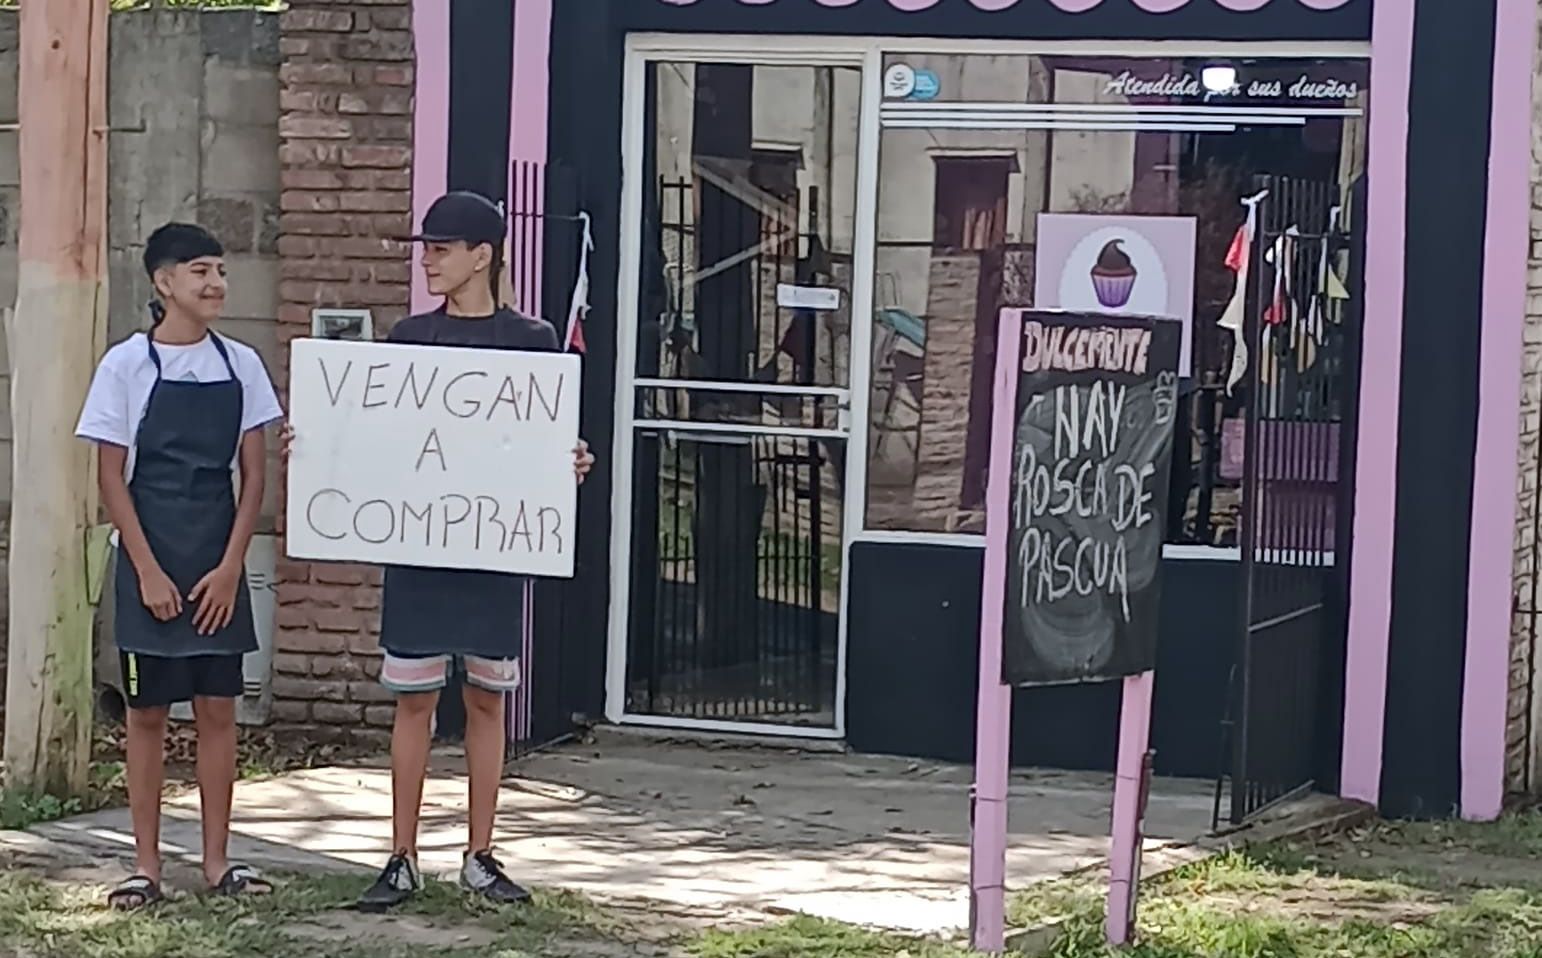 Atendida por sus dueños
VENGAN
A
COMPRAR
DULCEMENTE
HAY
ROSCA DE
PASCUA